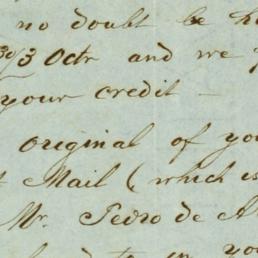 no doubt be
3 Octr and we
your credit —
original of you
Mail (which is
Mr. Pedro de A